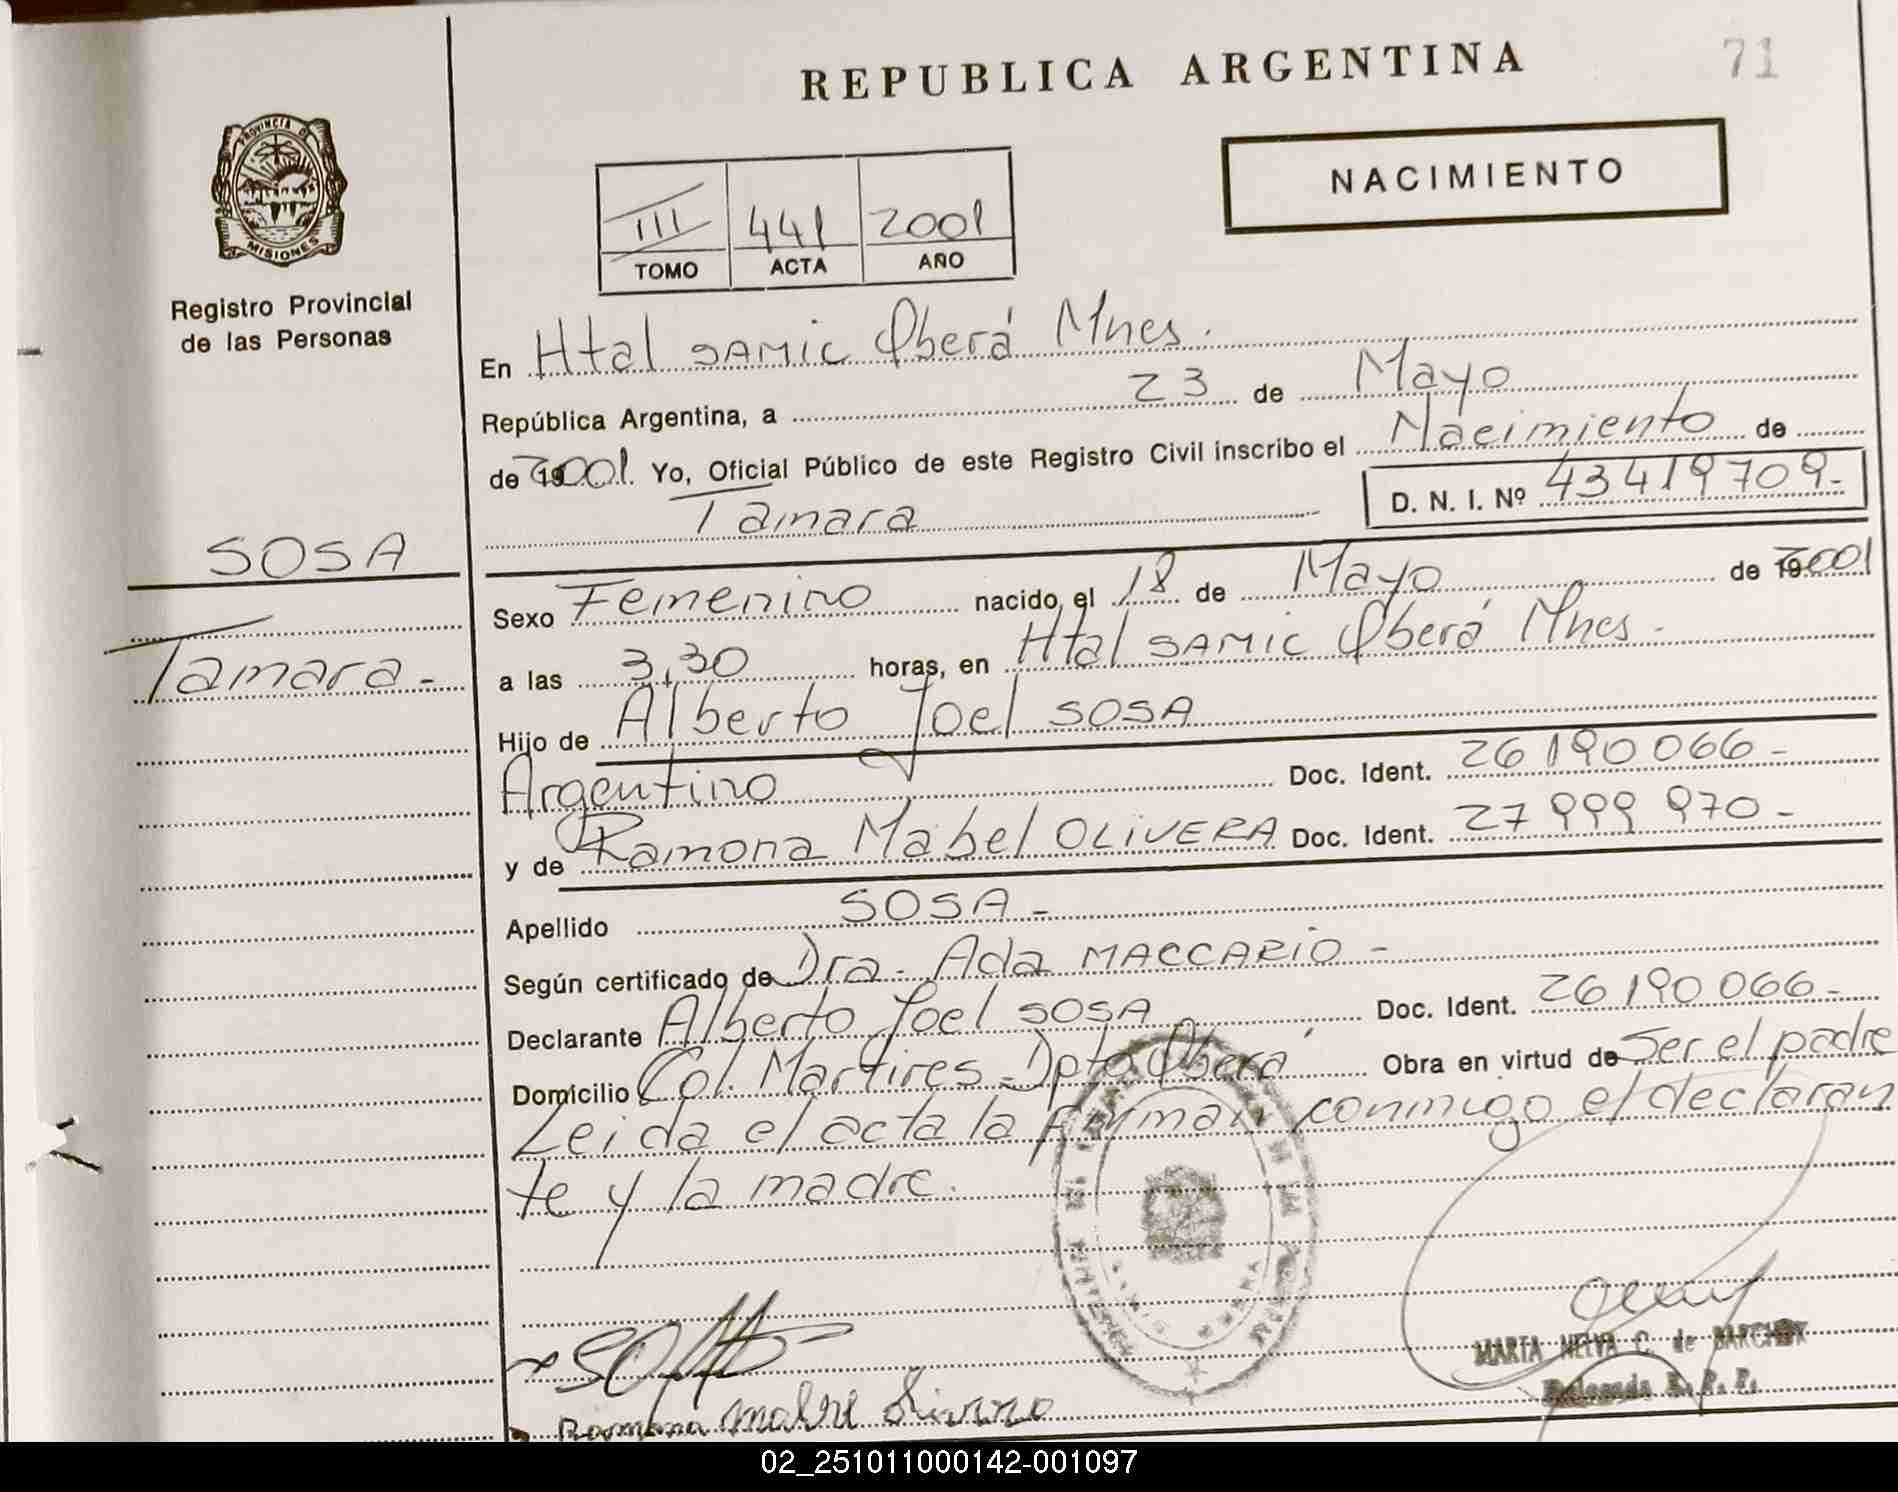 REPUBLICA ARGENTINA
71
PROVINCIA DE
MISIONES
Registro Provincial
de las Personas
NACIMIENTO
III 441 2001
TOMO ACTA AÑO
En Htal SAMIC Oberá Mnes.
República Argentina, a 23 de Mayo
de 2001. Yo, Oficial Público de este Registro Civil inscribo el Nacimiento de
Tamara
D. N. I. Nº 43419709-
SOSA
Tamara-
Sexo Femenino nacido el 18 de Mayo de 2001
a las 3,30 horas, en Htal SAMIC Oberá Mnes.
Hijo de Alberto Joel SOSA
Argentino Doc. Ident. 26190066-
y de Ramona Mabel OLIVERA Doc. Ident. 27999970-
Apellido SOSA-
Según certificado de Dra. Ada MACCARIO-
Declarante Alberto Joel SOSA Doc. Ident. 26190066-
Domicilio Col. Martires-Dpto Oberá Obra en virtud de Ser el padre
Leida el acta la firman conmigo el declaran
te y la madre.
MARTA NELVA C. de
Delegada R. P. P.
Ramona
02_251011000142-001097